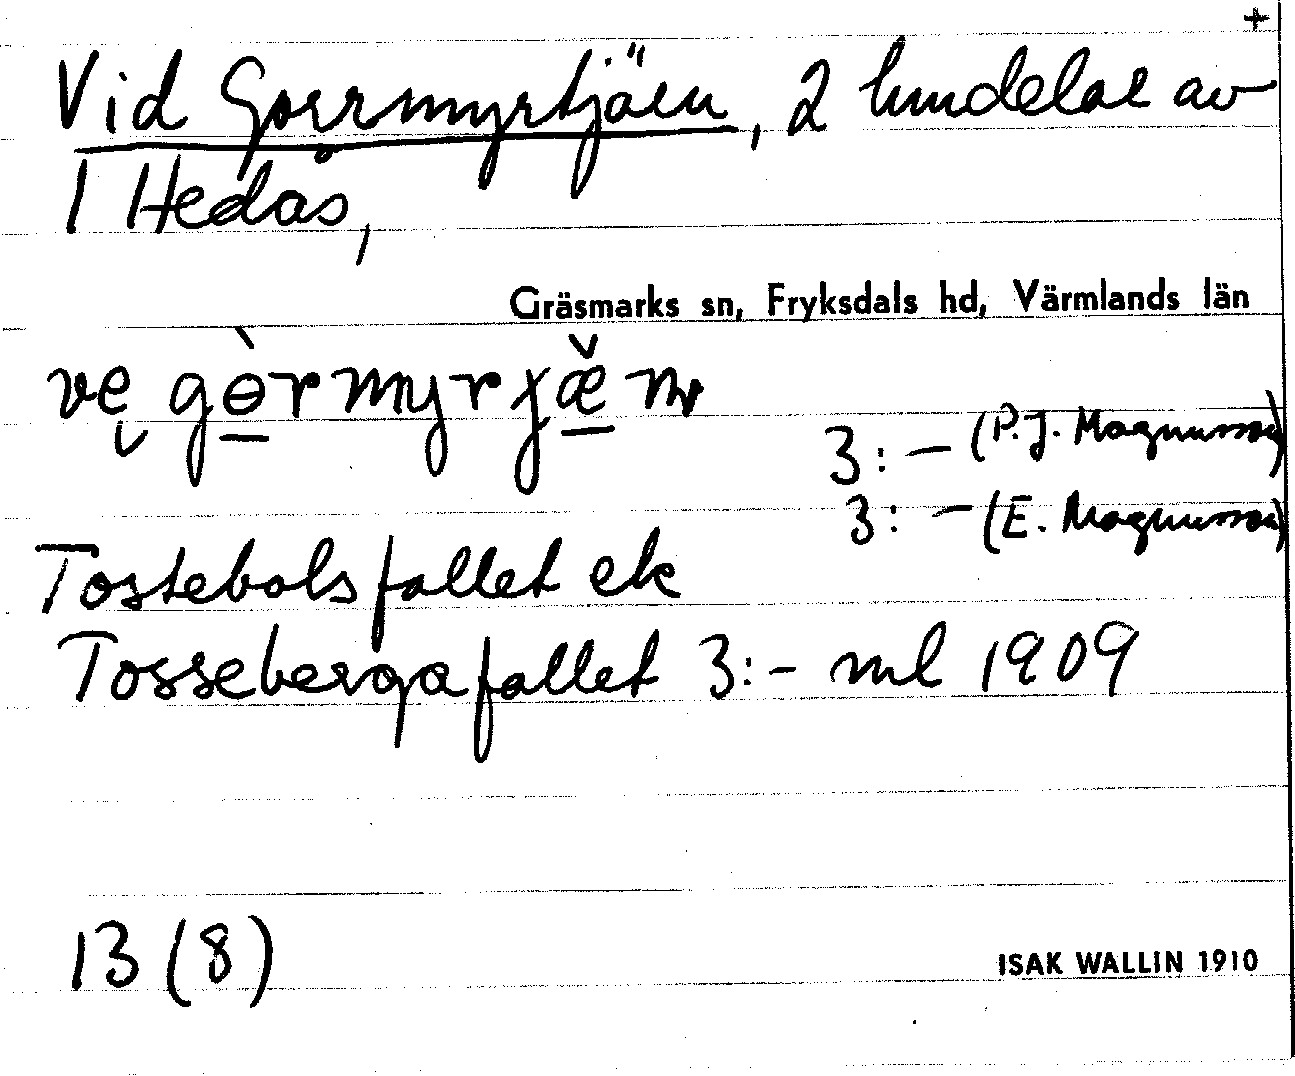 +
Vid Gorrmyrtjäen, 2 lundelar av
1 Hedås,
Gräsmarks sn, Fryksdals hd, Värmlands län
3:- (P.J. Magnusson)
3:- (E. Magnusson)
Tostebolsfallet ek
Tossebergafallet 3:- ml 1909
13 (8)
ISAK WALLIN 1910